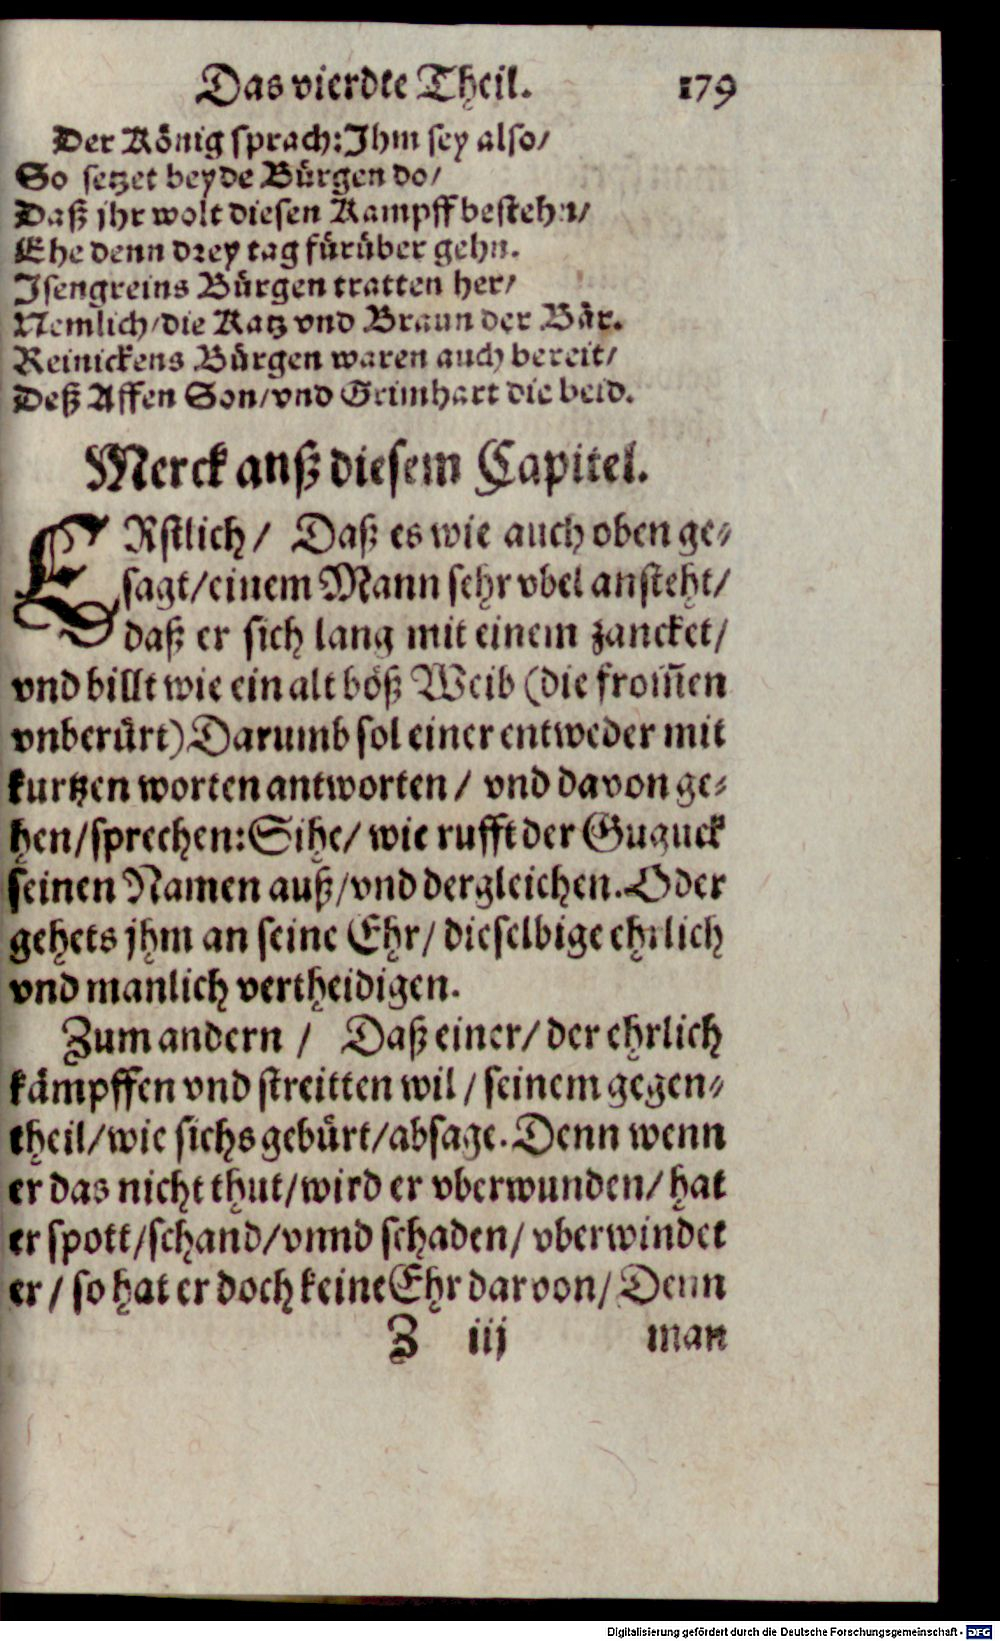 Das vierdte Theil. 179
Der König sprach: Ihm sey also/
So setzet beyde Bürgen do/
Daß jhr wolt diesen Kampff bestehn/
Ehe denn drey tag fürüber gehn.
Isengreins Bürgen tratten her/
Nemlich/die Katz vnd Braun der Bär.
Reinickens Bürgen waren auch bereit/
Deß Affen Son/vnd Grimhart die beid.
Merck anß diesem Capitel.
ERstlich / Daß es wie auch oben ge-
sagt/einem Mann sehr vbel ansteht/
daß er sich lang mit einem zancket/
vnd billt wie ein alt böß Weib (die from̃en
vnberürt) Darumb sol einer entweder mit
kurtzen worten antworten / vnd davon ge-
hen/sprechen: Sihe/ wie rufft der Guguck
seinen Namen auß/vnd dergleichen. Oder
gehets jhm an seine Ehr/ dieselbige ehrlich
vnd manlich vertheidigen.
Zum andern / Daß einer/ der ehrlich
kämpffen vnd streitten wil / seinem gegen-
theil/wie sichs gebürt/absage. Denn wenn
er das nicht thut/wird er vberwunden/ hat
er spott/schand/vnnd schaden/ vberwindet
er / so hat er doch keine Ehr darvon/ Denn
Z iij man
Digitalisierung gefördert durch die Deutsche Forschungsgemeinschaft - DFG